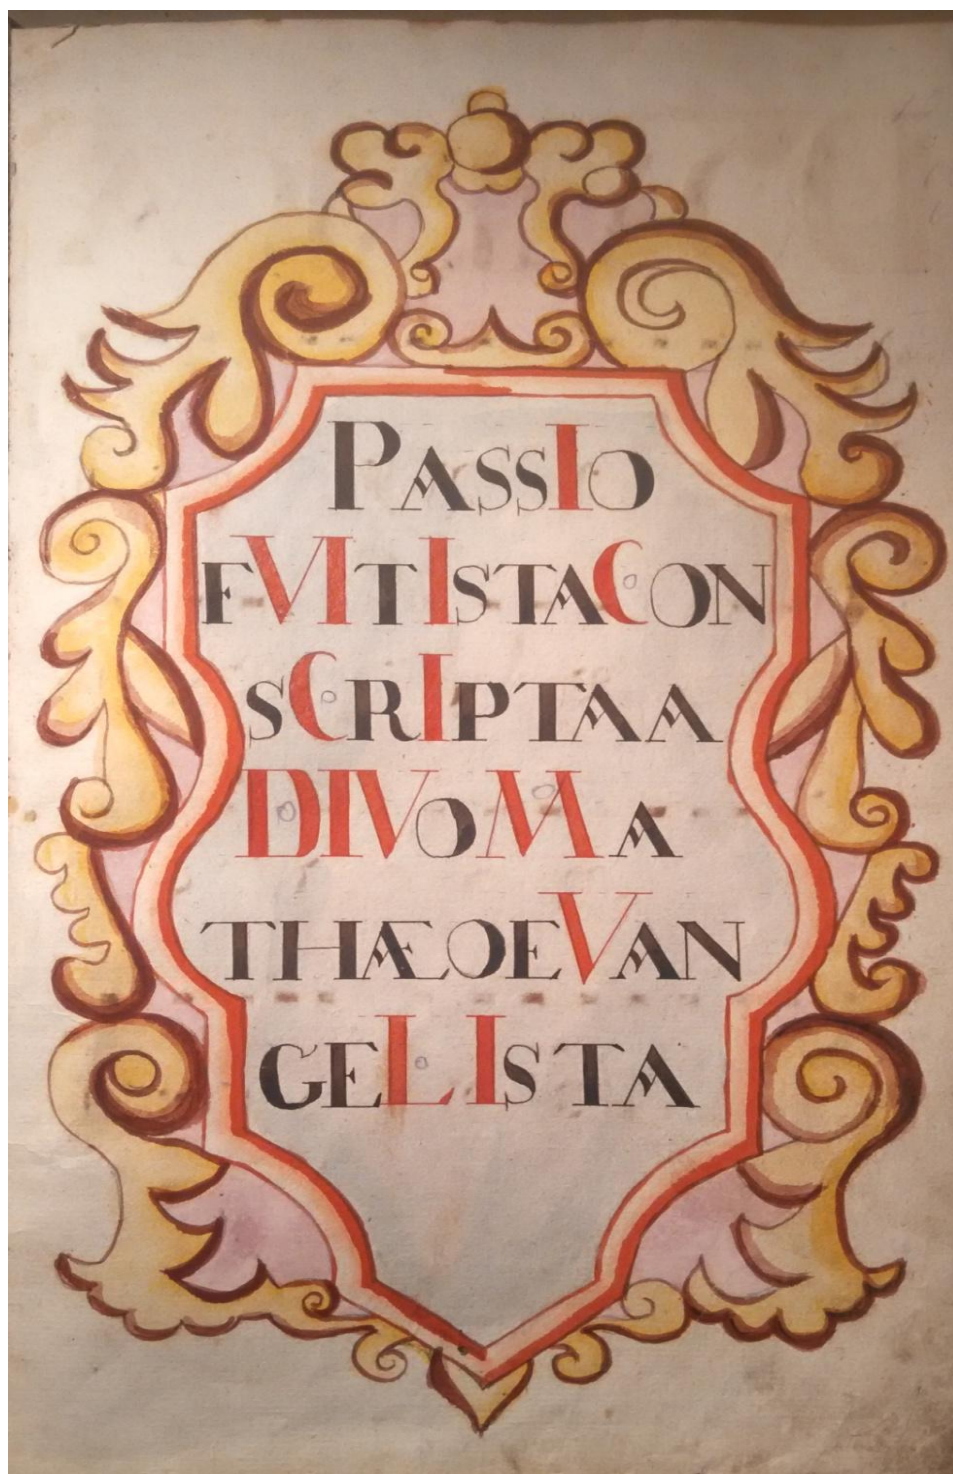 PASSIO
FVIT ISTA CON
SCRIPTA A
DIVO MA
THÆO EVAN
GELISTA